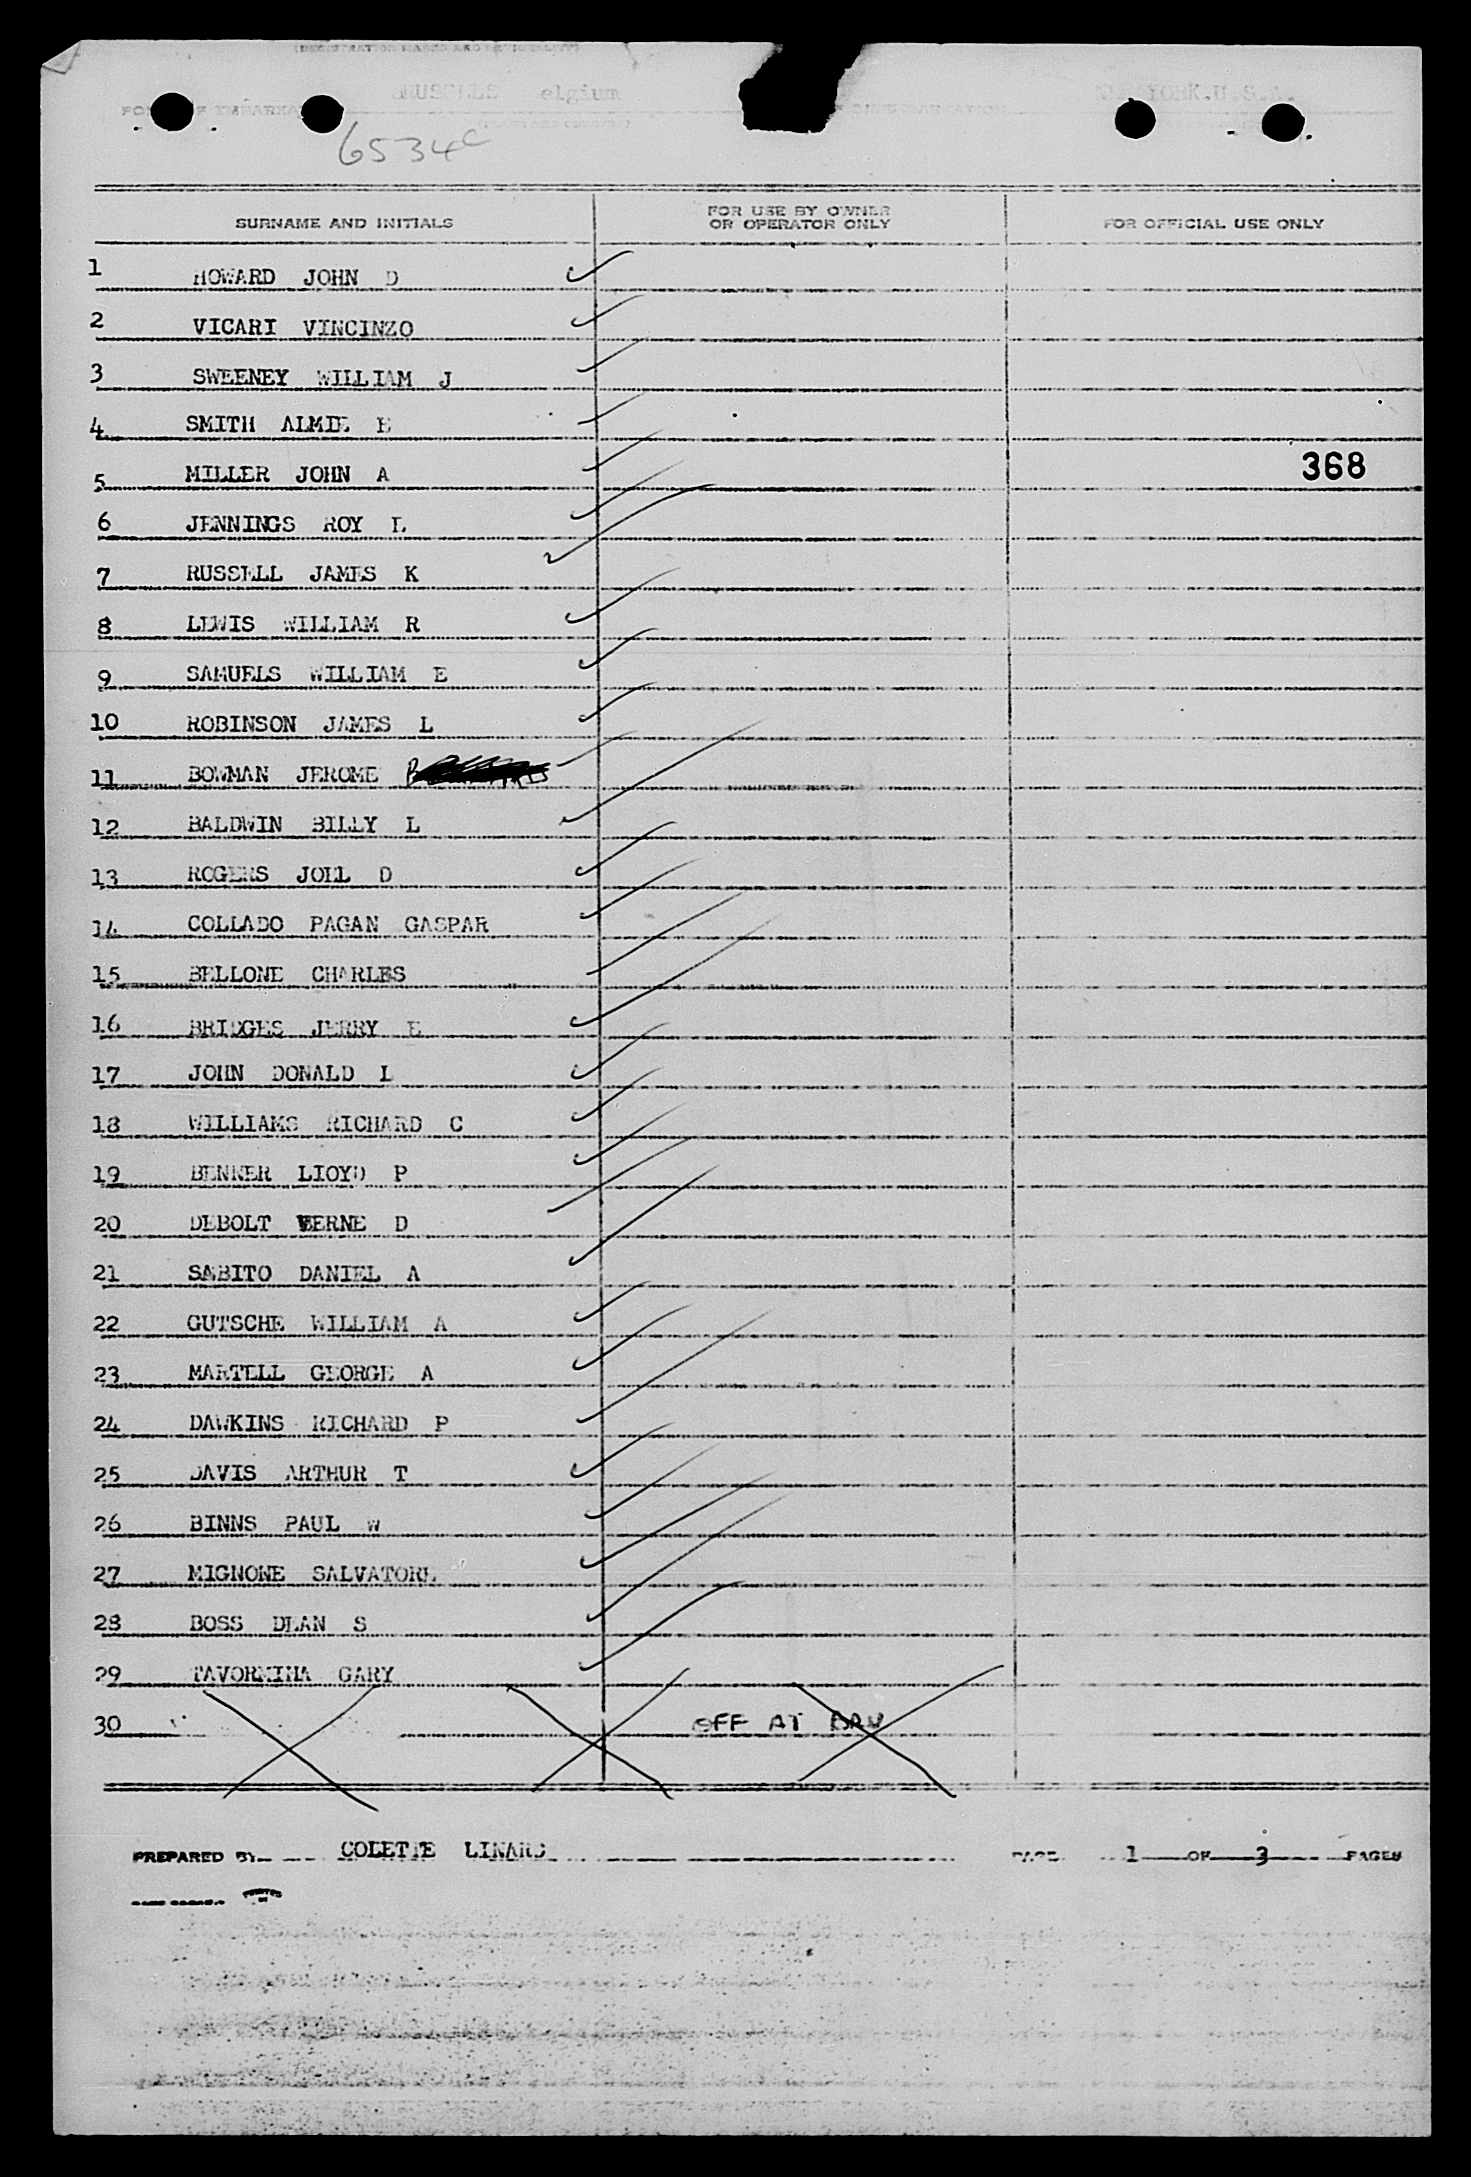 (REGISTRATION MARKS AND NATIONALITY)
BRUSSELS elgium YORK.U.S.A.
OF EMBARKA
6534c
SURNAME AND INITIALS FOR USE BY OWNER OR OPERATOR ONLY FOR OFFICIAL USE ONLY
1 HOWARD JOHN D
2 VICARI VINCINZO
3 SWEENEY WILLIAM J
4 SMITH ALMIE E
368
5 MILLER JOHN A
6 JENNINGS ROY L
7 RUSSELL JAMES K
8 LEWIS WILLIAM R
9 SAMUELS WILLIAM E
10 ROBINSON JAMES L
11 BOWMAN JEROME
12 BALDWIN BILLY L
13 ROGERS JOEL D
14 COLLADO PAGAN GASPAR
15 BELLONE CHARLES
16 BRIDGES JERRY E
17 JOHN DONALD L
18 WILLIAMS RICHARD C
19 BENKER LIOYD P
20 DEBOLT VERNE D
21 SABITO DANIEL A
22 GUTSCHE WILLIAM A
23 MARTELL GEORGE A
24 DAWKINS RICHARD P
25 DAVIS ARTHUR T
26 BINNS PAUL W
27 MIGNONE SALVATORE
28 BOSS DEAN S
29 TAVORMINA GARY
30 OFF AT
PREPARED BY COLETTE PAGE 1 OF 3 PAGES
PRINTED IN